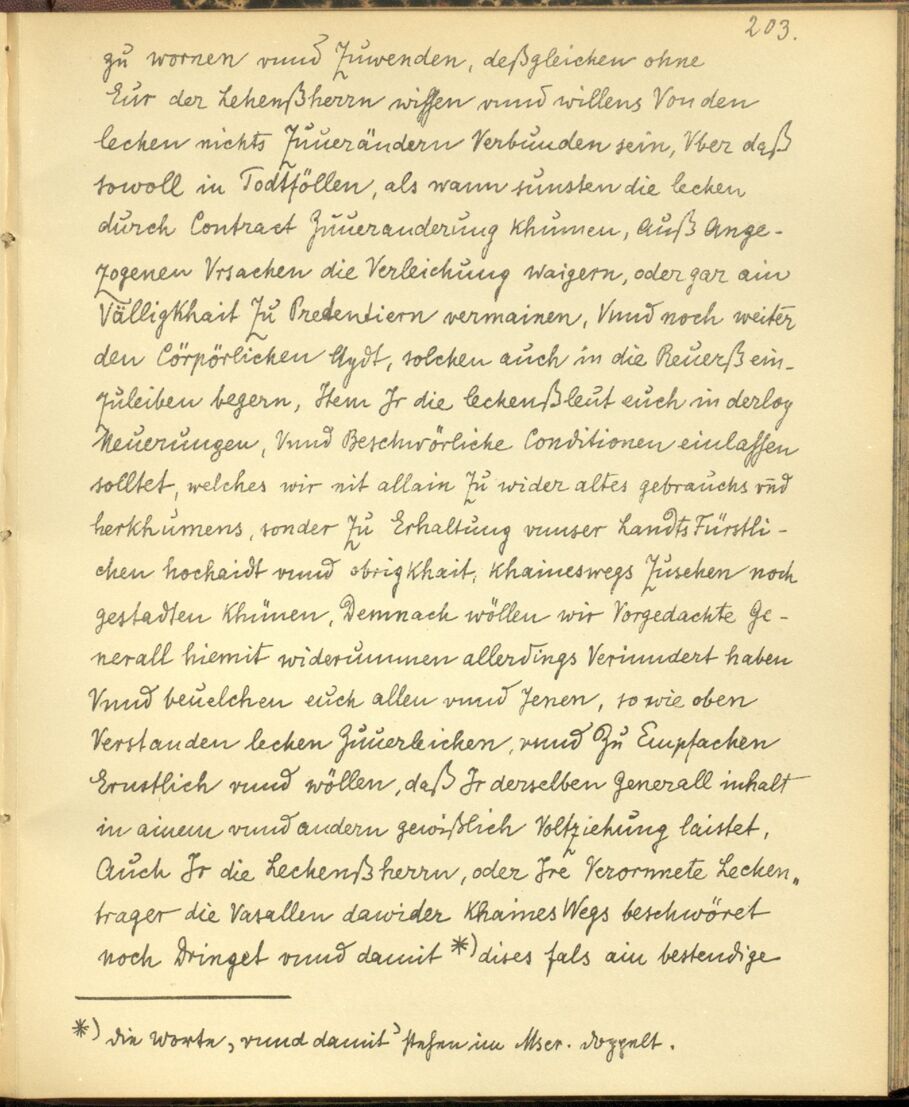 203.
zu wornen vnnd Zuwenden, deßgleichen ohne
Eur der Lehenßherrn wissen vnnd willens Von den
lechen nichts Zuuerändern Verbunden sein, Vber daß
sowoll in Todtföllen, als wann sunsten die lechen
durch Contract Zuueranderung khumen, Auß Ange-
zogenen Vrsachen die Verleichung waigern, oder gar ain
Välligkhait Zu Predentiern vermainen, Vnnd noch weiter
den Cörpörlichen Aydt, solchen auch in die Reuerß ein-
zuleiben begern, Item Ir die lechenßleut euch in derloy
Neuerungen, Vnnd Beschwörliche Conditionen einlassen
solltet, welches wir nit allain Zu wider altes gebrauchs vnd
herkhumens, sonder Zu Erhaltung vnnser LandtsFürstli-
chen hochaidt vnnd obrigkhait, khaineswegs Zusehen noch
gestadten khünen, Demnach wöllen wir Vorgedachte Ge-
nerall hiemit widerummen allerdings Verinndert haben
Vnnd beuelchen euch allen vnnd Jenen, so wie oben
Verstanden lechen Zuuerleichen, vnnd Zu Empfachen
Ernstlich vnnd wöllen, daß Ir derselben Generall inhalt
in ainem vnnd andern gewißlich Voltziehung laistet,
Auch Ir die Lechenßherrn, oder Ire Verornnete Lechen„
trager die Vasallen dawider khaines Wegs beschwöret
noch Dringet vnnd damit *) dises fals ain bestendige
*) Die Worte „vnnd damit" stehen im Mscr. doppelt.